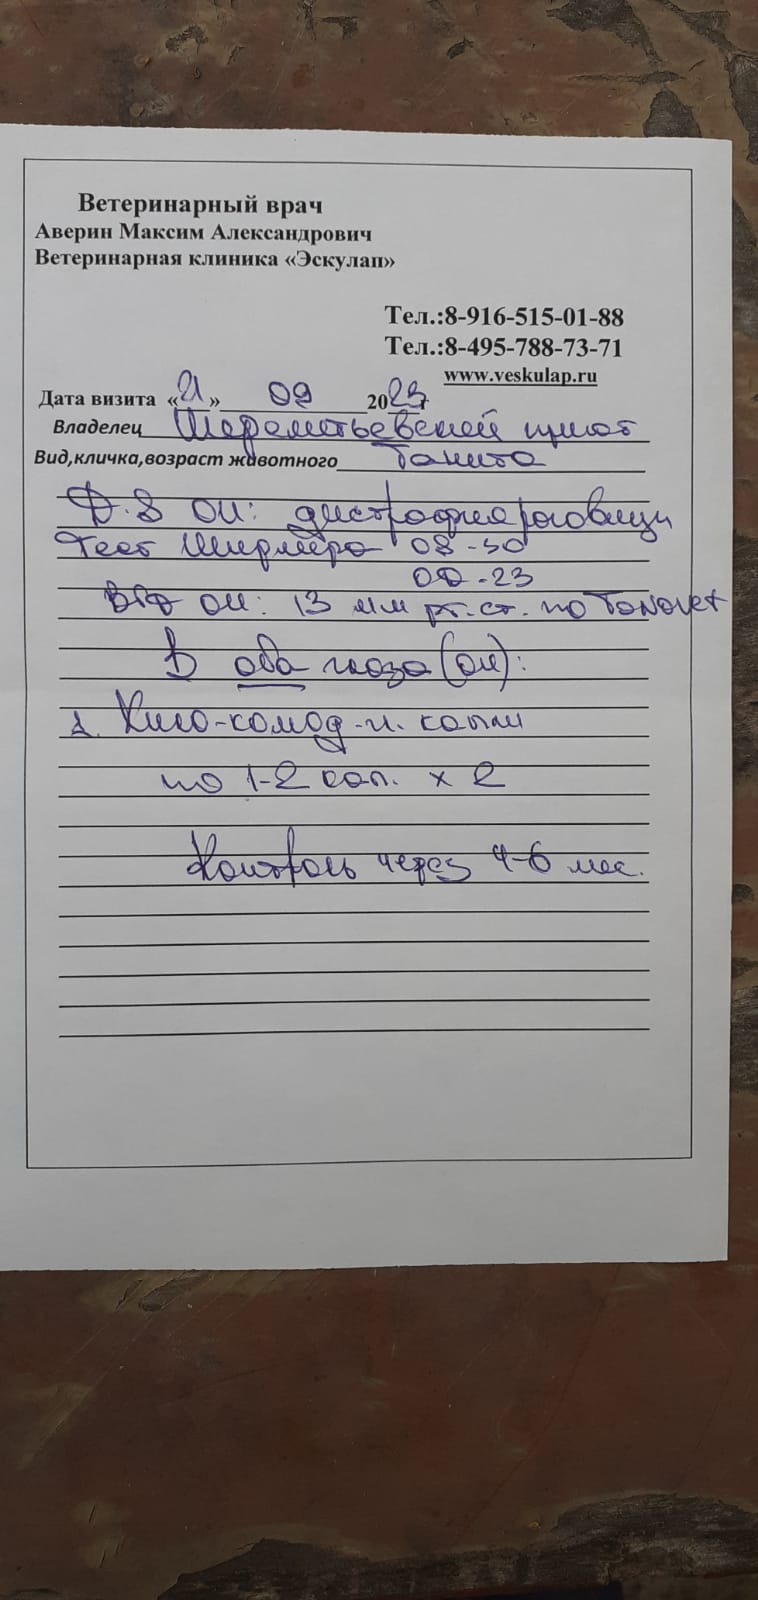 Ветеринарный врач
Аверин Максим Александрович
Ветеринарная клиника «Эскулап»
Тел.:8-916-515-01-88
Тел.:8-495-788-73-71
www.veskulap.ru
Дата визита «21» 09 2023г
Владелец Шереметьевский приют
Вид,кличка,возраст животного Танита
Д.S ОИ: дистрофия роговицы
Тест Ширмера OS-30
OD-23
ВГД ОИ: 13 мм рт.ст. по Tonovet
В оба глаза (ОИ):
1. Хило-комод-и. капли
по 1-2 кап. х 2
Контроль через 4-6 мес.